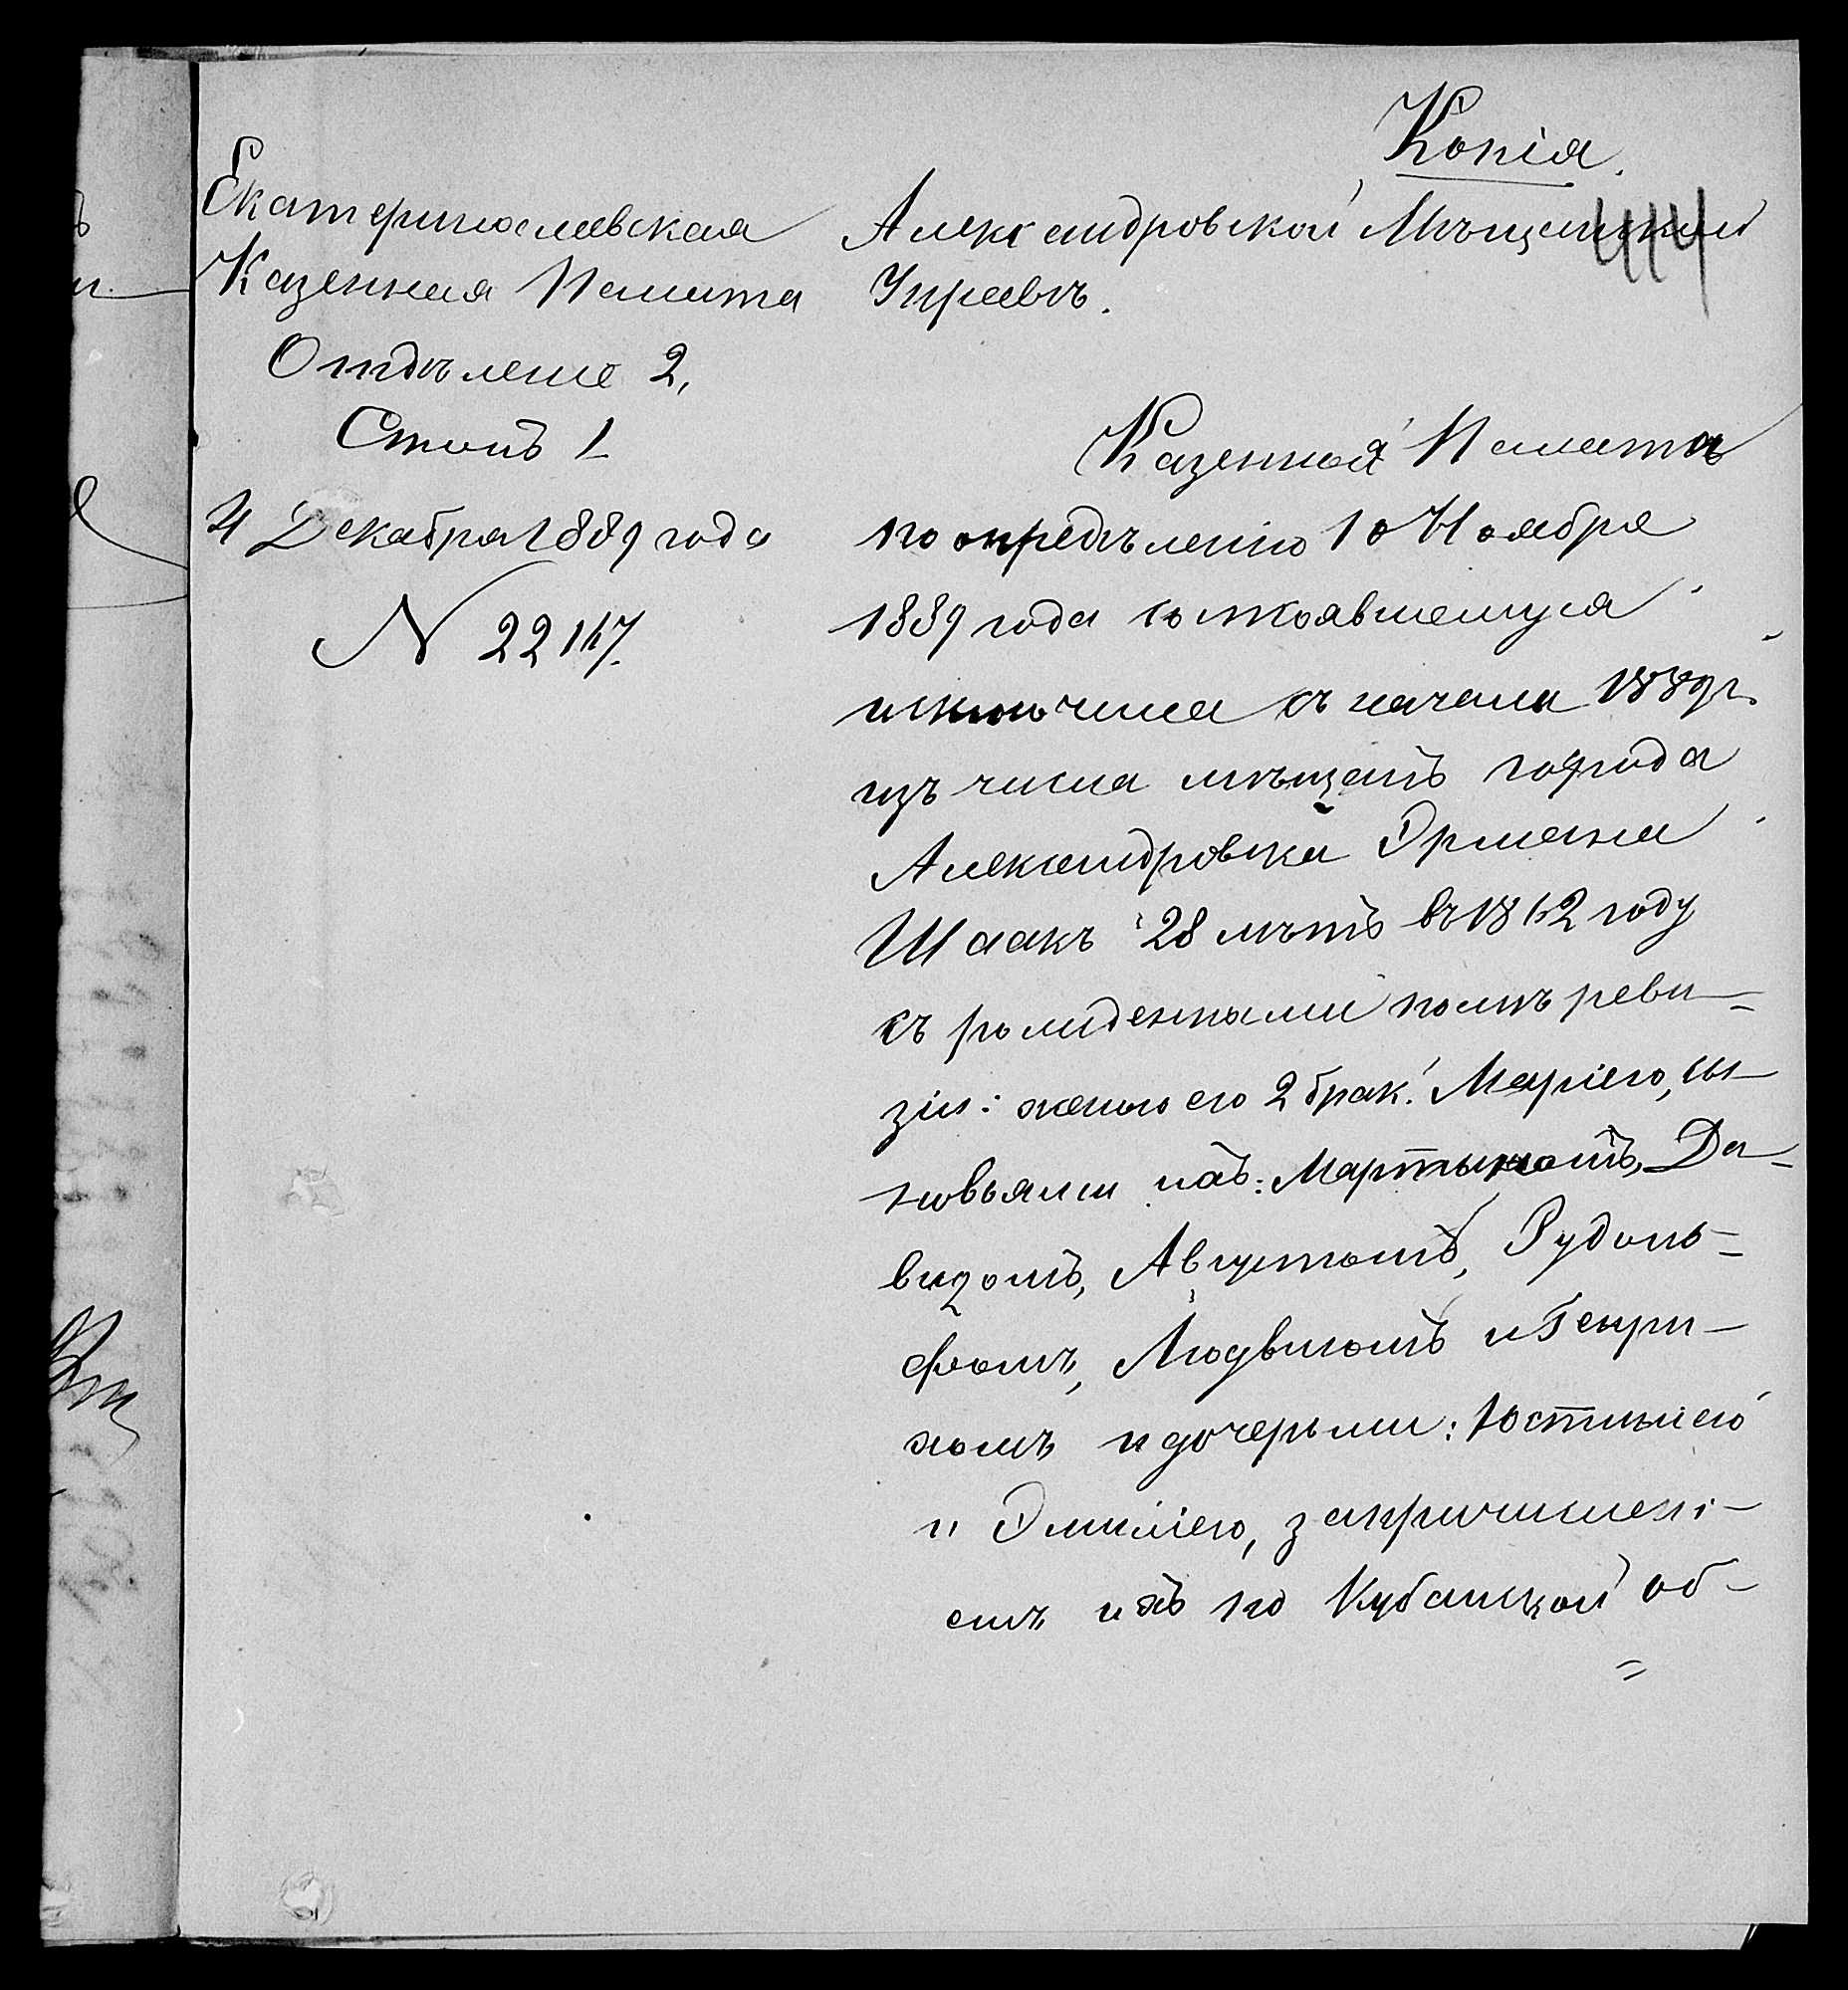 Копія.
414
Екатеринославская
Казенная Палата
Отдѣленіе 2,
Столъ 1
4 Декабря 1889 года
N 22117.
Александровской Мѣщанской
Управѣ.
Казенная Палата
по опредѣленію 10 Ноября
1889 года состоявшемуся
исключила съ начала 1889 г.
изъ числа мѣщанъ города
Александровска Эрмана
Шаакъ 28 лѣтъ въ 1862 году
съ рожденными послѣ реви-
зіи: женою его 2 брак. Маріею, сы-
новьями ихъ: Мартыномъ, Да-
видомъ, Августомъ, Рудоль-
фомъ, Людвигомъ и Генри-
хомъ и дочерьми: Юстиніею
и Эмиліею, за причислені-
емъ ихъ по Кубанской об-